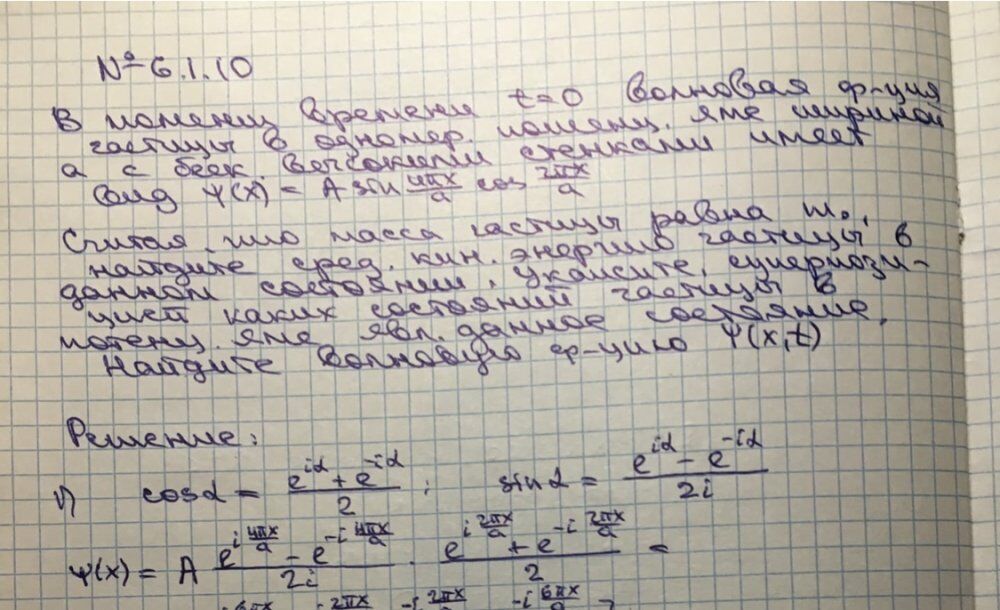 № 6.1.10
В момент времени t=0 волновая ф-ция
частицы в одномер. потенц. яме шириной
а с беск. высокими стенками имеет
вид ψ(x) = A sin 4πx/a cos 2πx/a
Считая, что масса частицы равна m₀,
найдите сред. кин. энергию частицы в
данном состоянии, укажите, суперпози-
цией каких состояний частицы в
потенц. яме явл. данное состояние.
Найдите волновую ф-цию Ψ(x,t)
Решение:
1) cosα = (e^{iα} + e^{-iα})/2 ; sinα = (e^{iα} - e^{-iα})/2i
ψ(x) = A (e^{i 4πx/a} - e^{-i 4πx/a})/2i · (e^{i 2πx/a} + e^{-i 2πx/a})/2 =